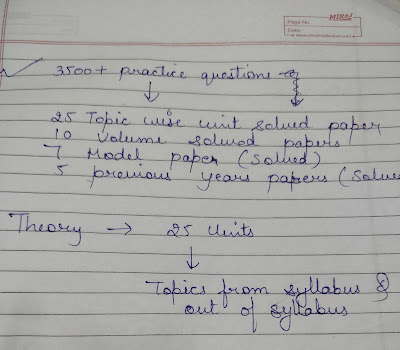 MIRAJ
Page No.
Date:
3500+ practice questions
25 Topic wise unit solved paper
10 volume solved papers
7 Model paper (Solved)
5 previous years papers (Solved
Theory → 25 Units
Topics from syllabus &
out of syllabus